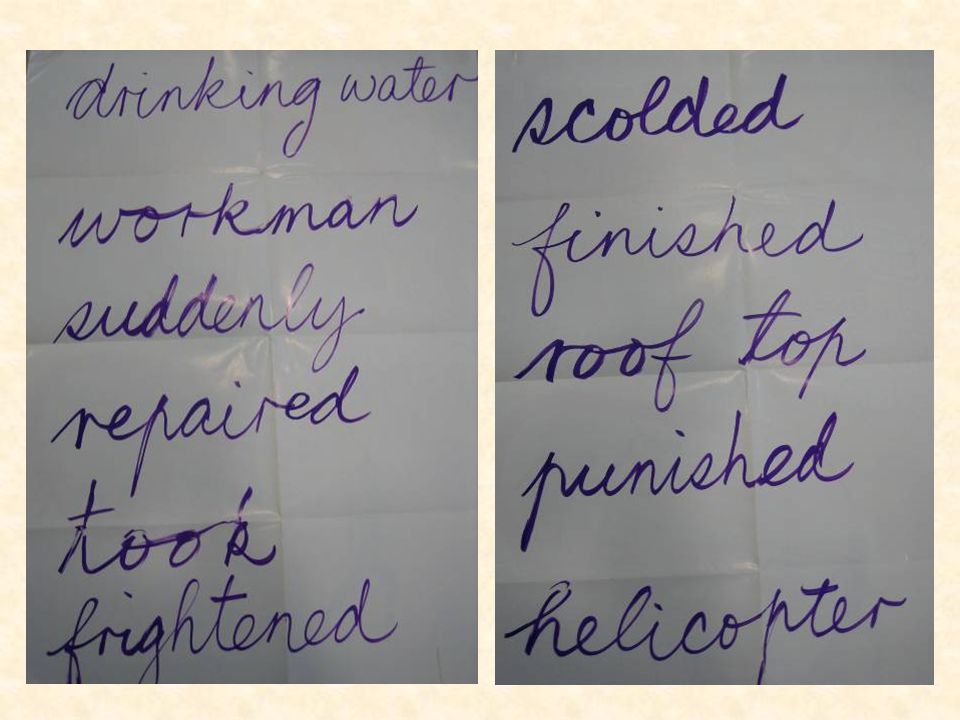 drinking water
workman
suddenly
repaired
took
frightened
scolded
finished
roof top
punished
helicopter